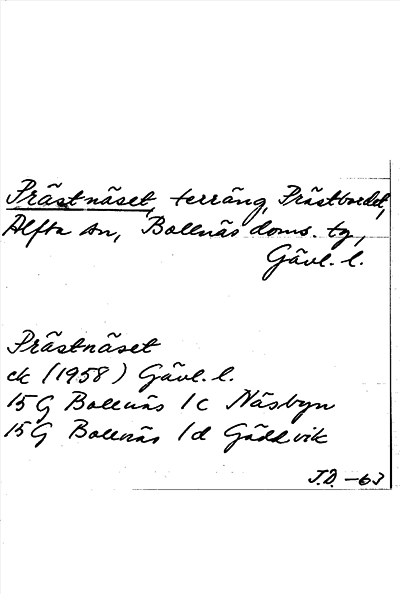 Prästnäset, terräng, Prästbordet,
Alfta sn, Bollnäs doms. tg,
Gävl. l.
Prästnäset
ek (1958) Gävl. l.
15 G Bollnäs 1c Näsbyn
15 G Bollnäs 1d Gäddvik
J.D. -63